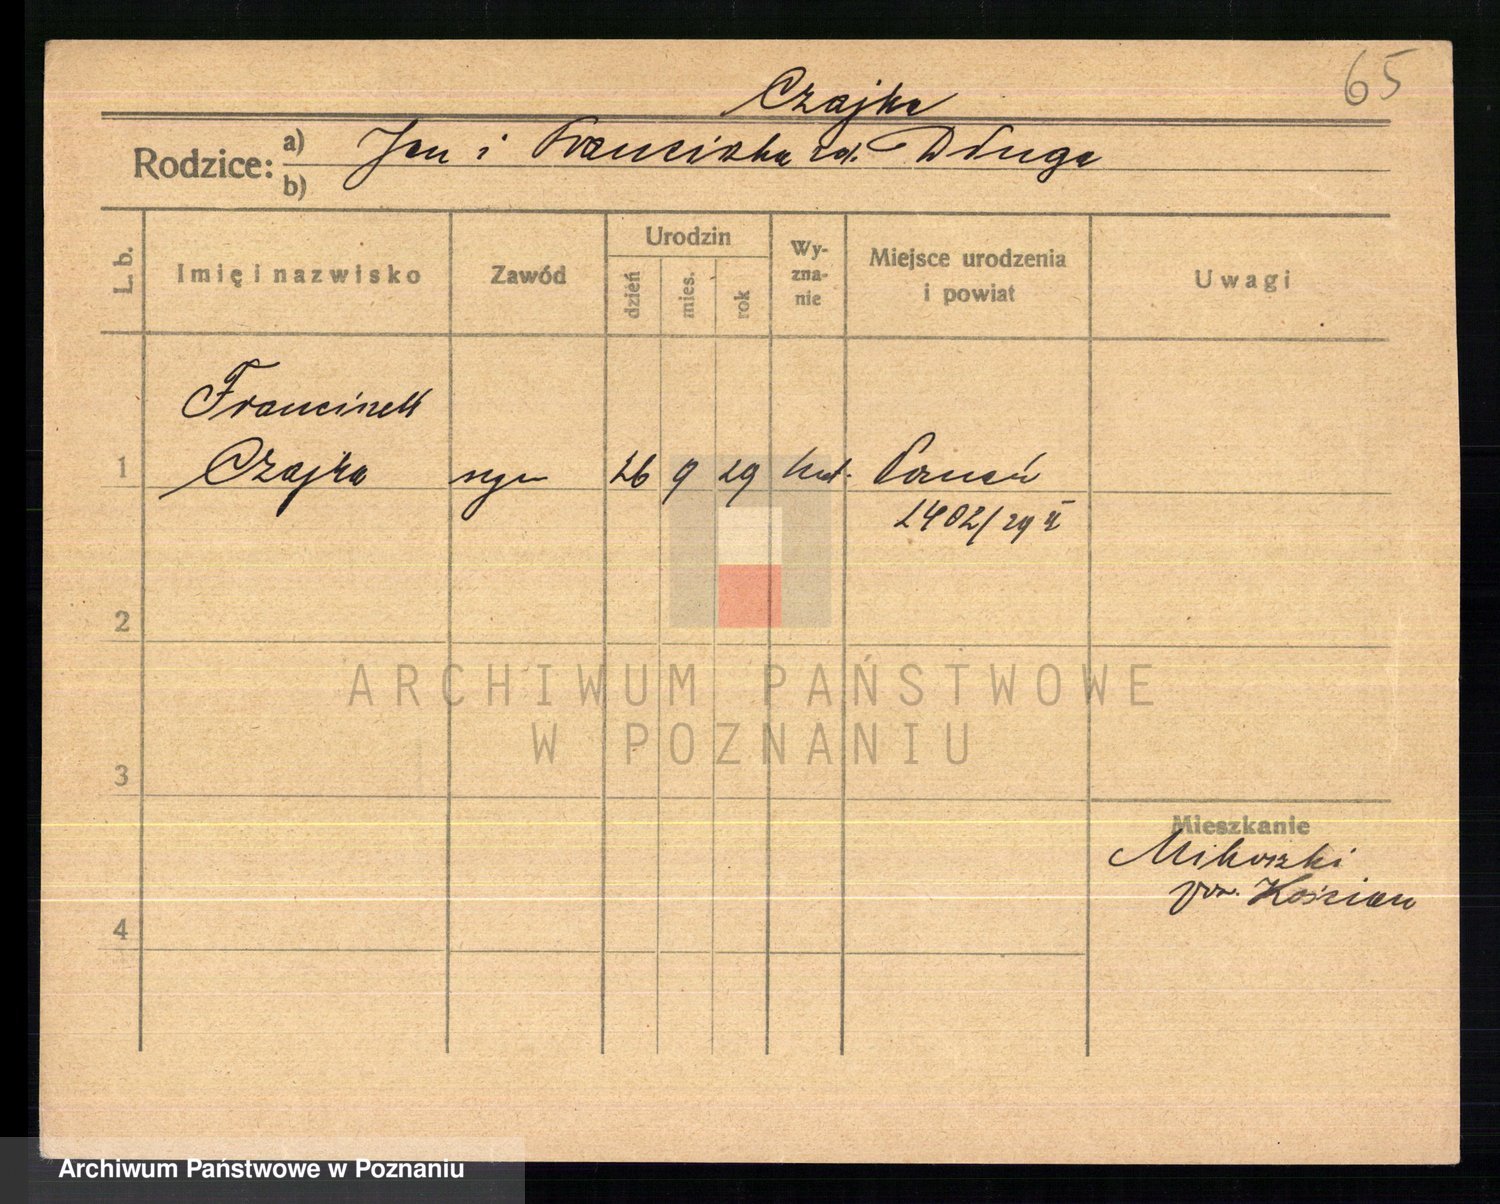 65
Czajka
Rodzice: a) Jan i Franciszka zd. Długa
b)
L. b. Imię i nazwisko Zawód Urodzin dzień mies. rok Wyznanie Miejsce urodzenia i powiat Uwagi
Franciszek
1 Czajka syn 26 9 29 kat. Poznań
2402/29 II
2
3
4
Mieszkanie
Mikoszki
pow. Kościan
ARCHIWUM PAŃSTWOWE
W POZNANIU
Archiwum Państwowe w Poznaniu